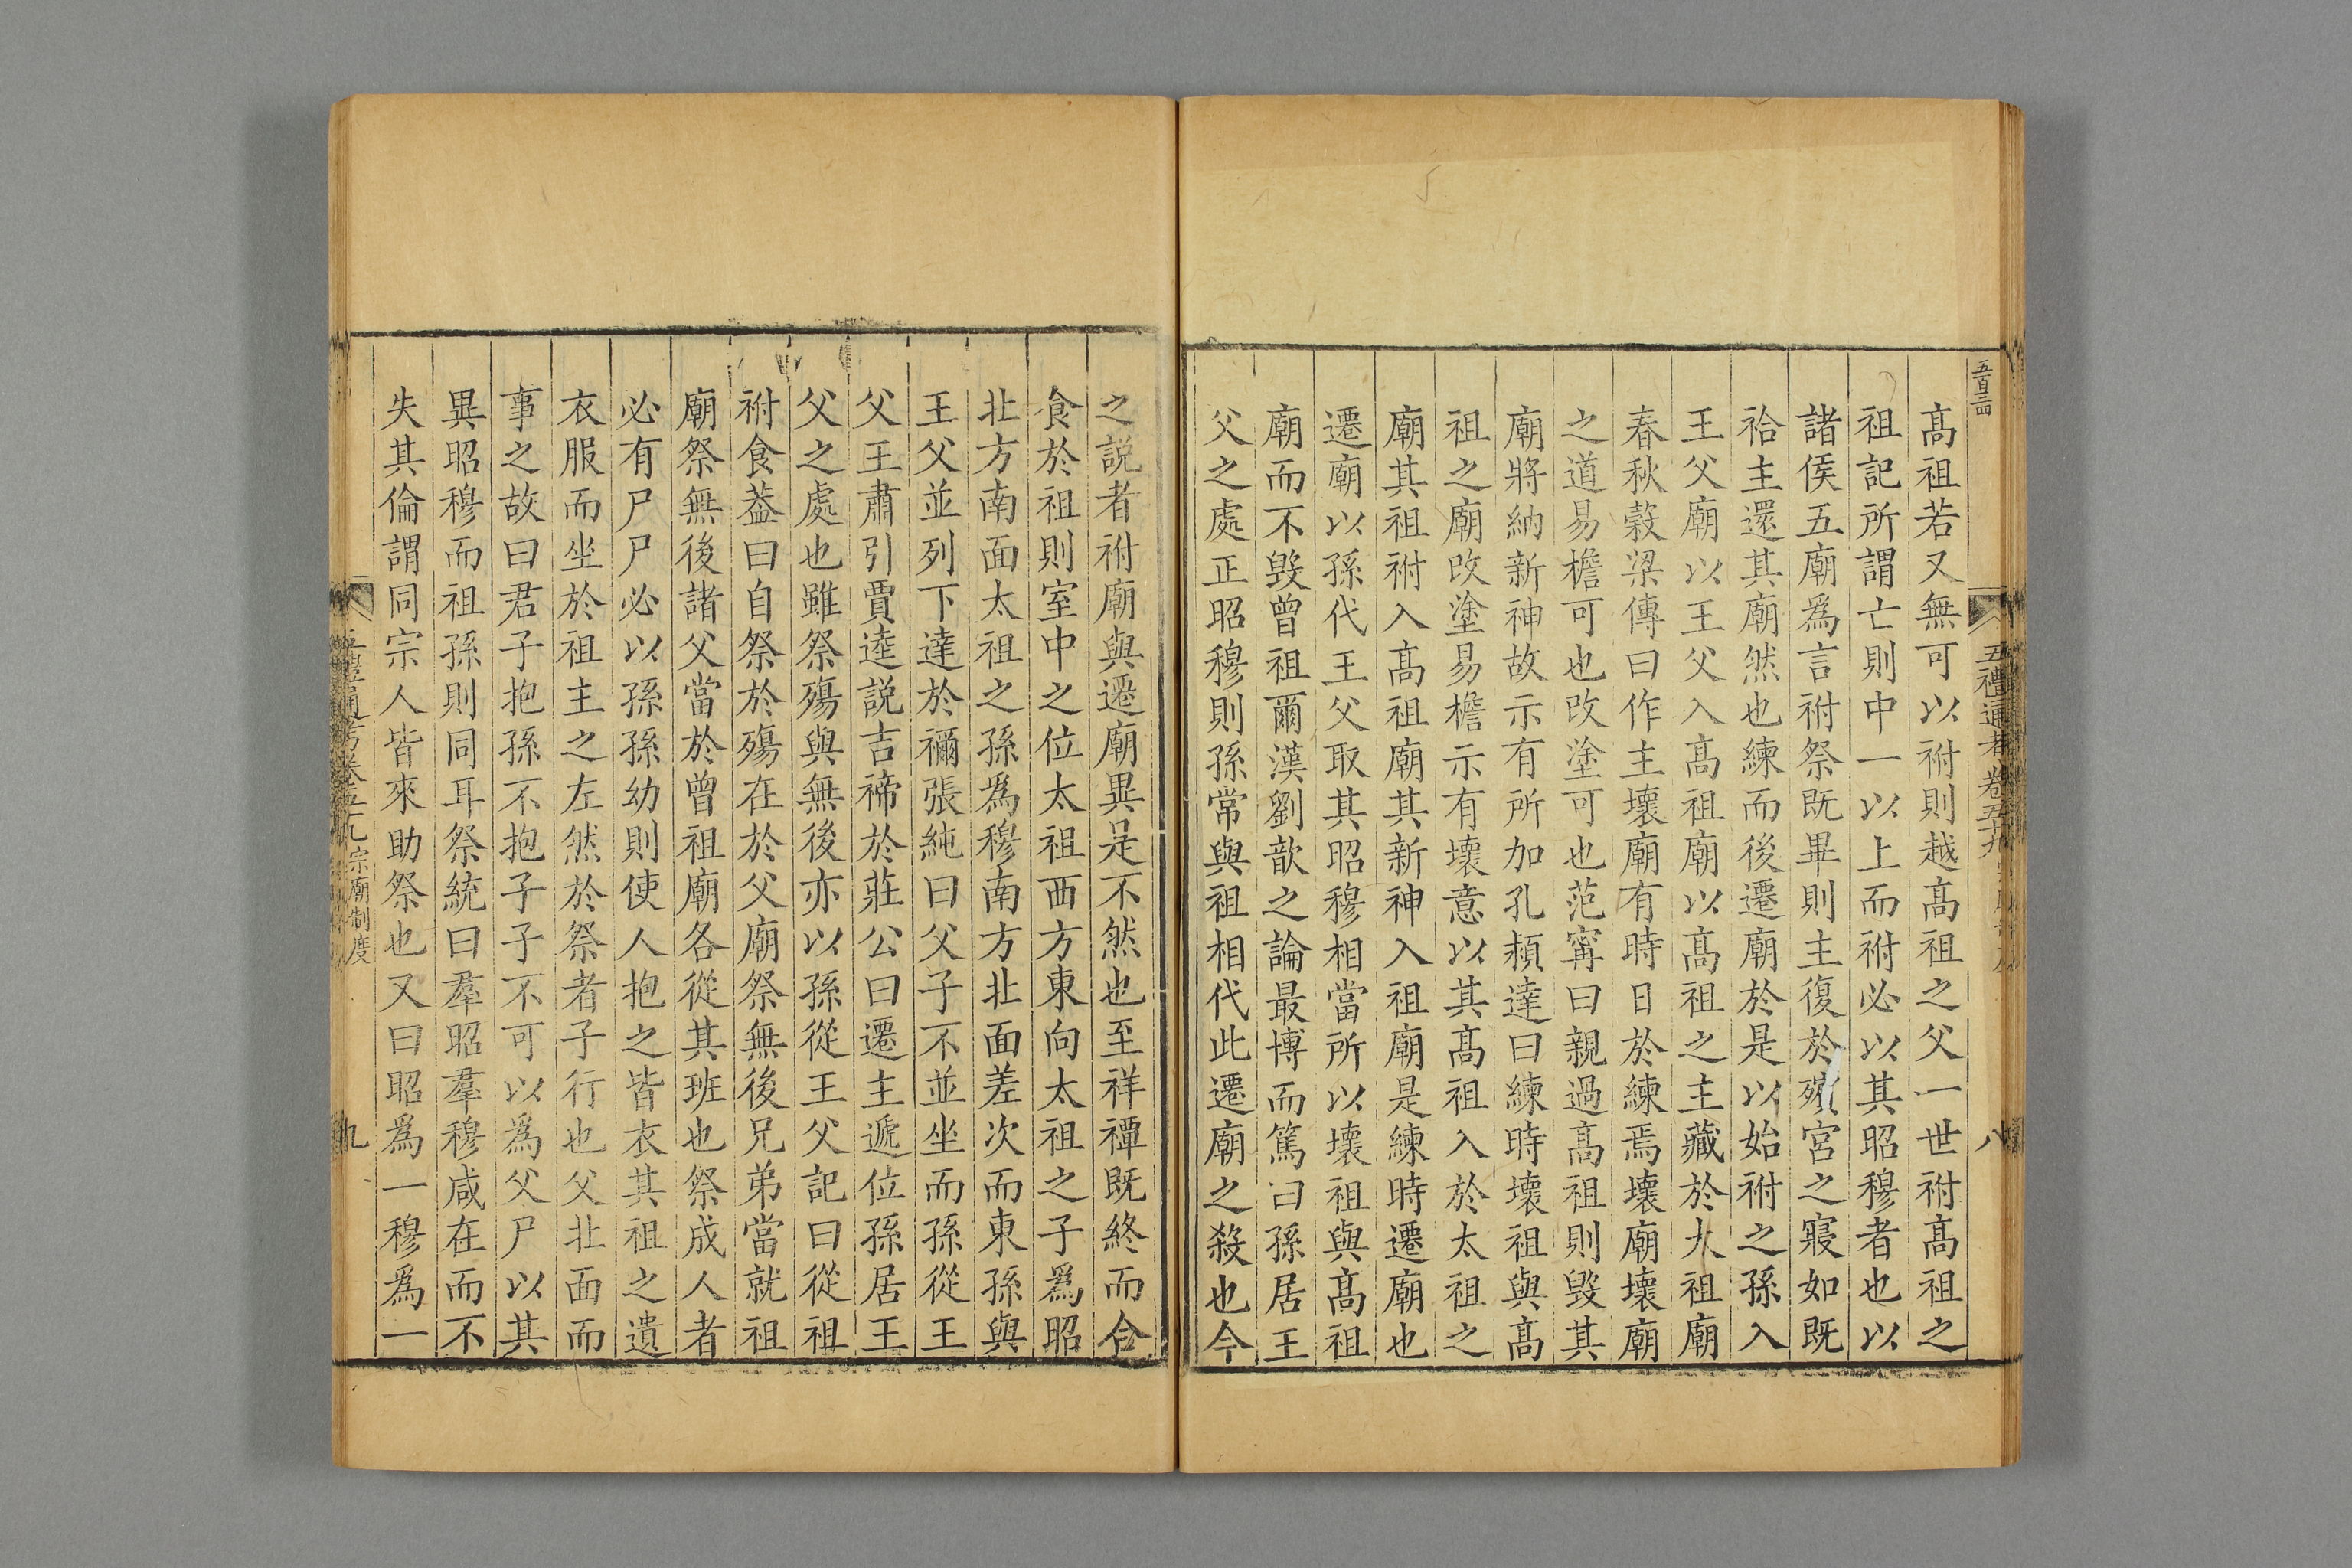 五百三四
五禮通考卷五十九
八
高祖若又無可以祔則越高祖之父一世祔高祖之
祖記所謂亡則中一以上而祔必以其昭穆者也以
諸侯五廟爲言祔祭既畢則主復於殯宮之寢如既
祫主還其廟然也練而後遷廟於是以始祔之孫入
王父廟以王父入高祖廟以高祖之主藏於大祖廟
春秋穀梁傳曰作主壞廟有時日於練焉壞廟壞廟
之道易檐可也改塗可也范寗曰親過高祖則毀其
廟將納新神故示有所加孔頴達曰練時壞祖與高
祖之廟改塗易檐示有壞意以其高祖入於太祖之
廟其祖祔入高祖廟其新神入祖廟是練時遷廟也
遷廟以孫代王父取其昭穆相當所以壞祖與高祖
廟而不毀曾祖爾漢劉歆之論最博而篤曰孫居王
父之處正昭穆則孫常與祖相代此遷廟之殺也今
之説者祔廟與遷廟異是不然也至祥禫既終而合
食於祖則室中之位太祖西方東向太祖之子爲昭
北方南面太祖之孫爲穆南方北面差次而東孫與
王父並列下達於禰張純曰父子不並坐而孫從王
父王肅引賈逵説吉禘於莊公曰遷主遞位孫居王
父之處也雖祭殤與無後亦以孫從王父記曰從祖
祔食葢曰自祭於殤在於父廟祭無後兄弟當就祖
廟祭無後諸父當於曾祖廟各從其班也祭成人者
必有尸尸必以孫孫幼則使人抱之皆衣其祖之遺
衣服而坐於祖主之左然於祭者子行也父北面而
事之故曰君子抱孫不抱子子不可以爲父尸以其
異昭穆而祖孫則同耳祭統曰羣昭羣穆咸在而不
失其倫謂同宗人皆來助祭也又曰昭爲一穆爲一
五禮通考卷五十九 宗廟制度
九